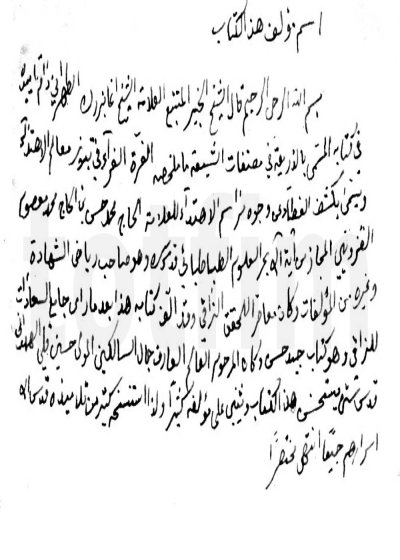 اسم مؤلف هذا الكتاب
بسم الله الرحمن الرحيم قال الشيخ الخبير المتتبع العلامة الشيخ اغا بزرك الطهراني دام تأييده
في كتابه المسمى بالذريعة في مصنفات الشيعة ما ملخصه الغرة الغراء في تبويز معالم الاهتداء
وتنجي بكشف الغطاء عن وجوه مراسم الاهتداء للعلامة الحاج محمد حسن بن الحاج محمد معصوم
القزويني المجاز من آية الله بحر العلوم الطباطبائي قدس سره وهو صاحب رياض الشهادة
وغيره من المؤلفات وكان معاصرا للمحقق النراقي وقد الف كتابه هذا بعد ما راى جامع السعادات
للنراقي وهو كتاب جيد حسن وكان المرحوم العالم العارف جمال السالكين المولى حسين قلي الهمداني
قدس سره يستحسن هذا الكتاب ويثني على مؤلفه كثيرا ولذا استنسخه كثير من تلاميذه قدس الله
اسرارهم جميعا انتهى مختصرا